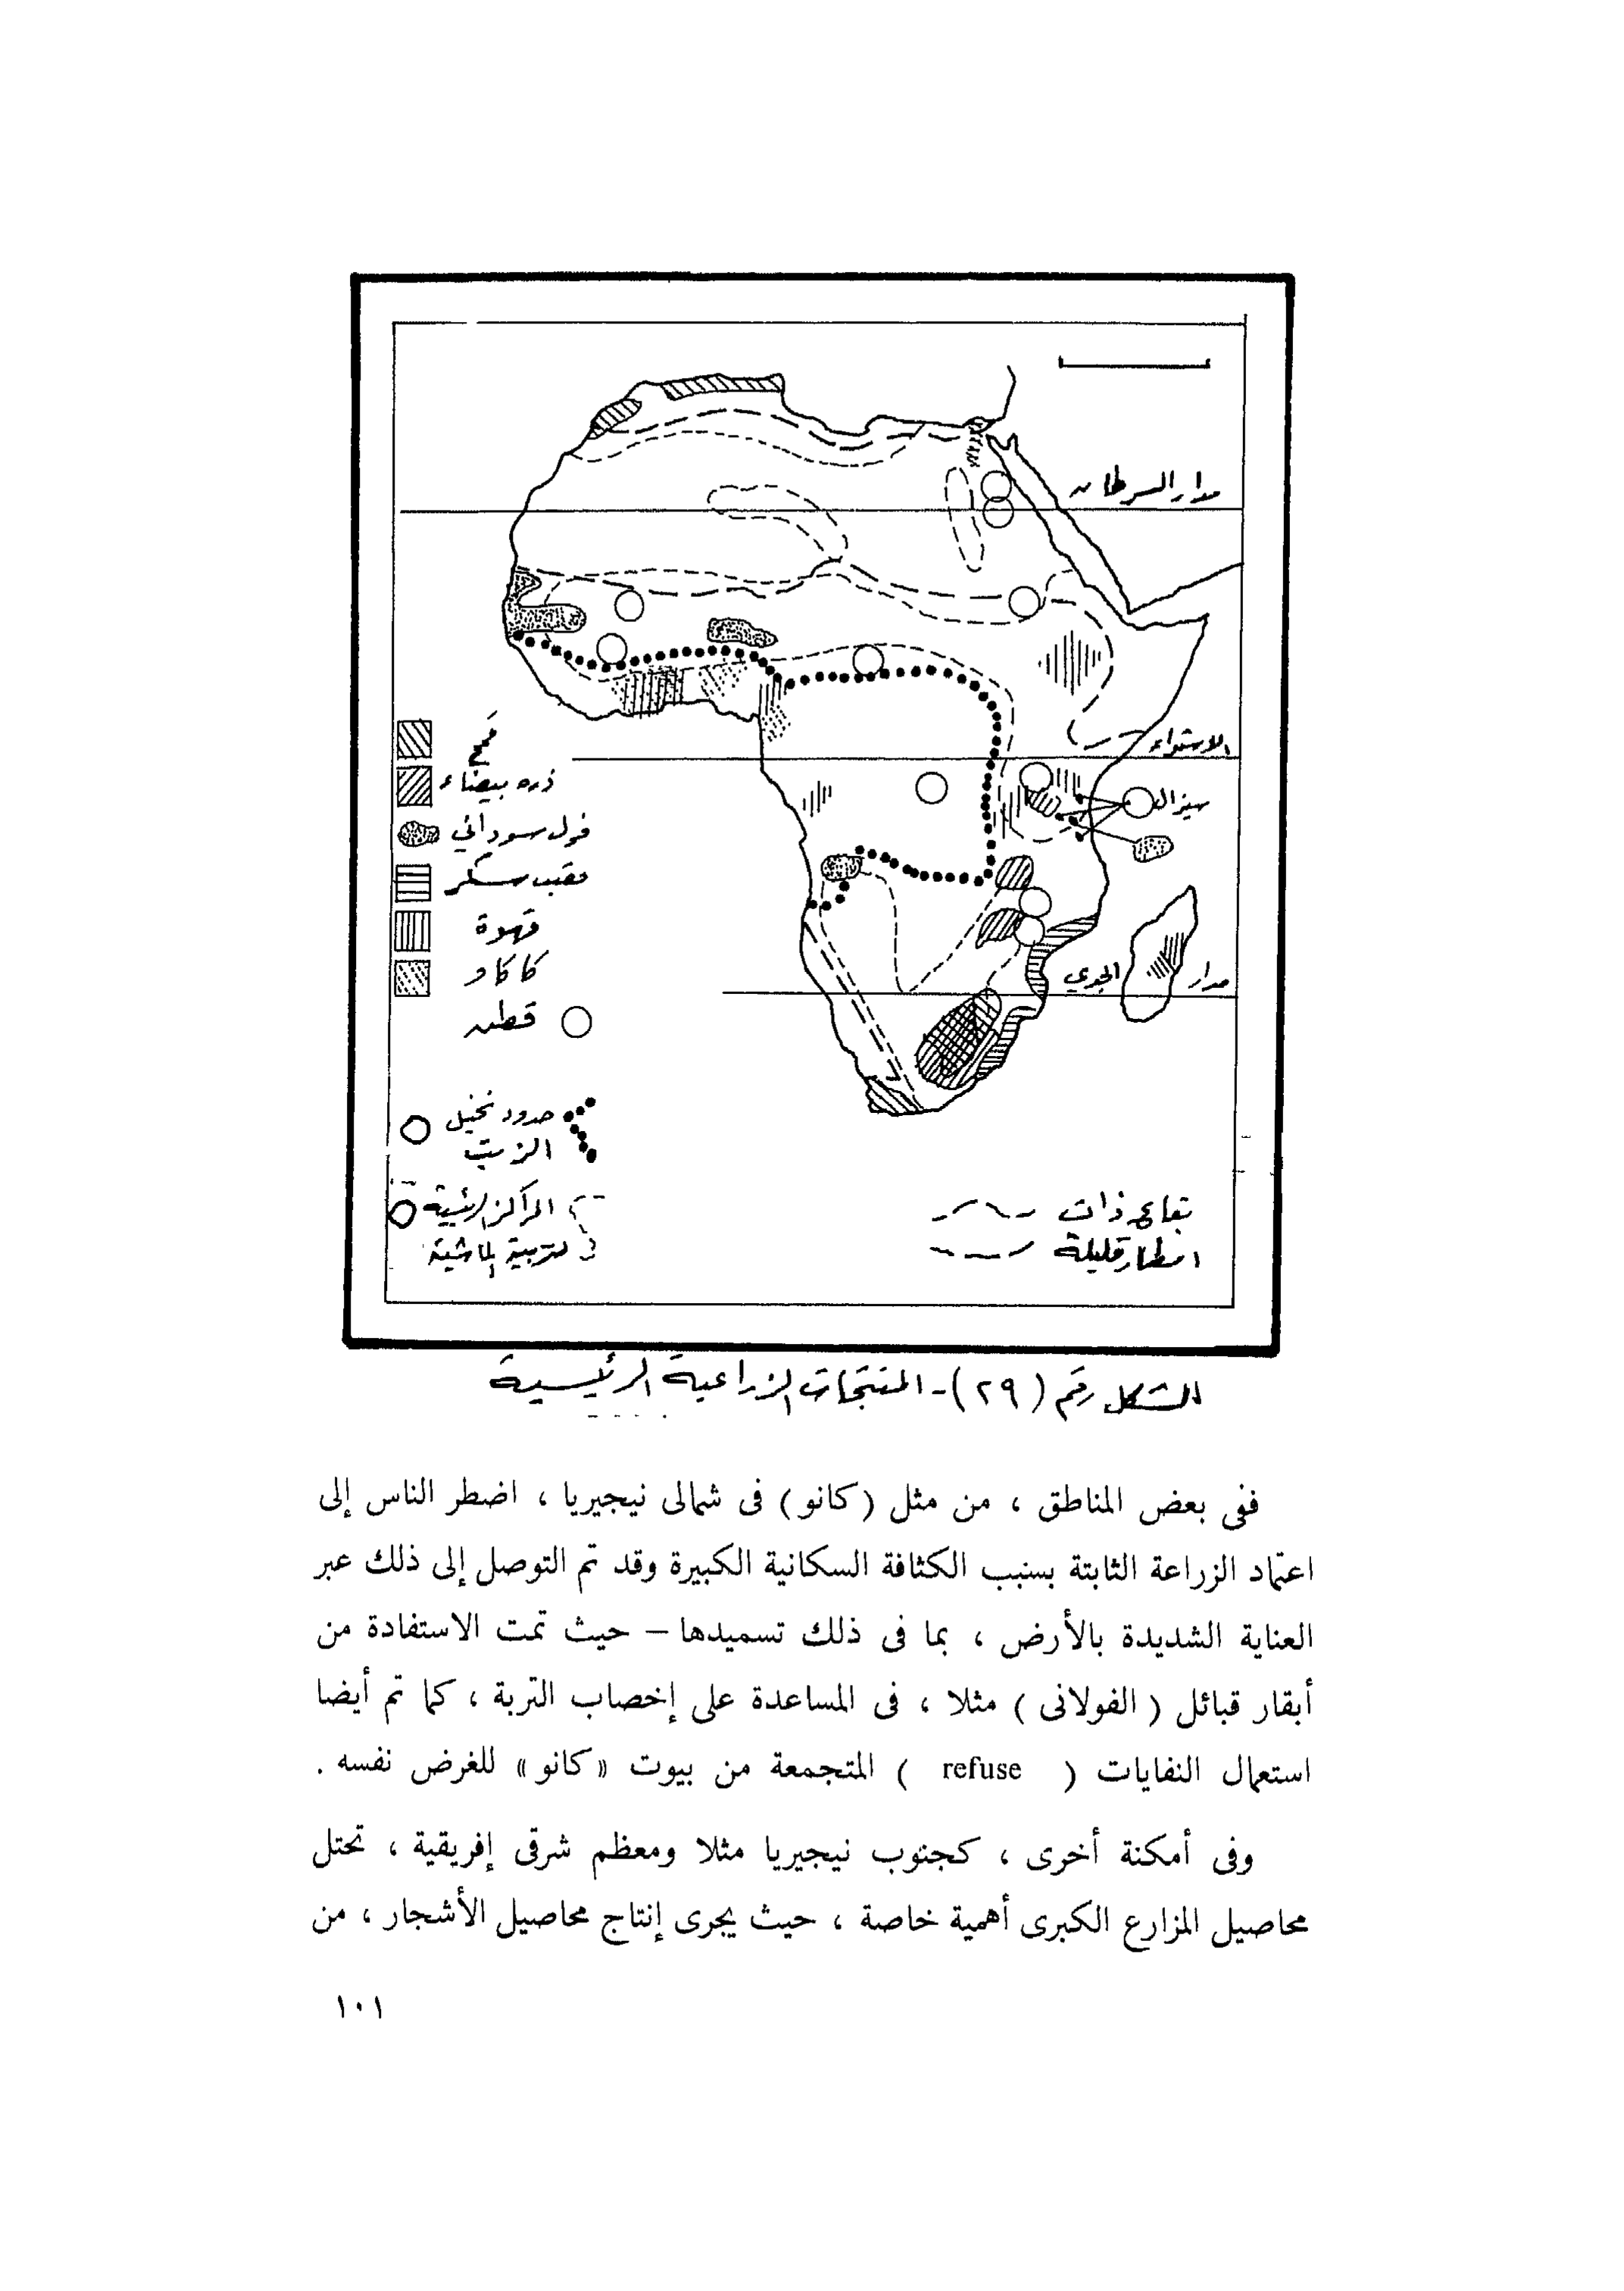 مدار السرطان
الاستواء
سيزال
مدار الجدي
قمح
ذره بيضاء
فول سوداني
قصب سكر
قهوة
كاكاو
قطن
حدود نخيل
الزيت
المراكز الرئيسية
لتربية الماشية
بقاع ذات
امطار قليلة
الشكل رقم (٢٩) - المنتجات الزراعية الرئيسية
ففى بعض المناطق ، من مثل (كانو) فى شمالى نيجيريا ، اضطر الناس إلى
اعتماد الزراعة الثابتة بسنبب الكثافة السكانية الكبيرة وقد تم التوصل إلى ذلك عبر
العناية الشديدة بالأرض ، بما فى ذلك تسميدها – حيث تمت الاستفادة من
أبقار قبائل ( الفولانى ) مثلا ، فى المساعدة على إخصاب التربة ، كما تم أيضا
استعمال النفايات ( refuse ) المتجمعة من بيوت «كانو» للغرض نفسه .
وفى أمكنة أخرى ، كجنوب نيجيريا مثلا ومعظم شرقى إفريقية ، تحتل
محاصيل المزارع الكبرى أهمية خاصة ، حيث يجرى إنتاج محاصيل الأشجار ، من
١٠١